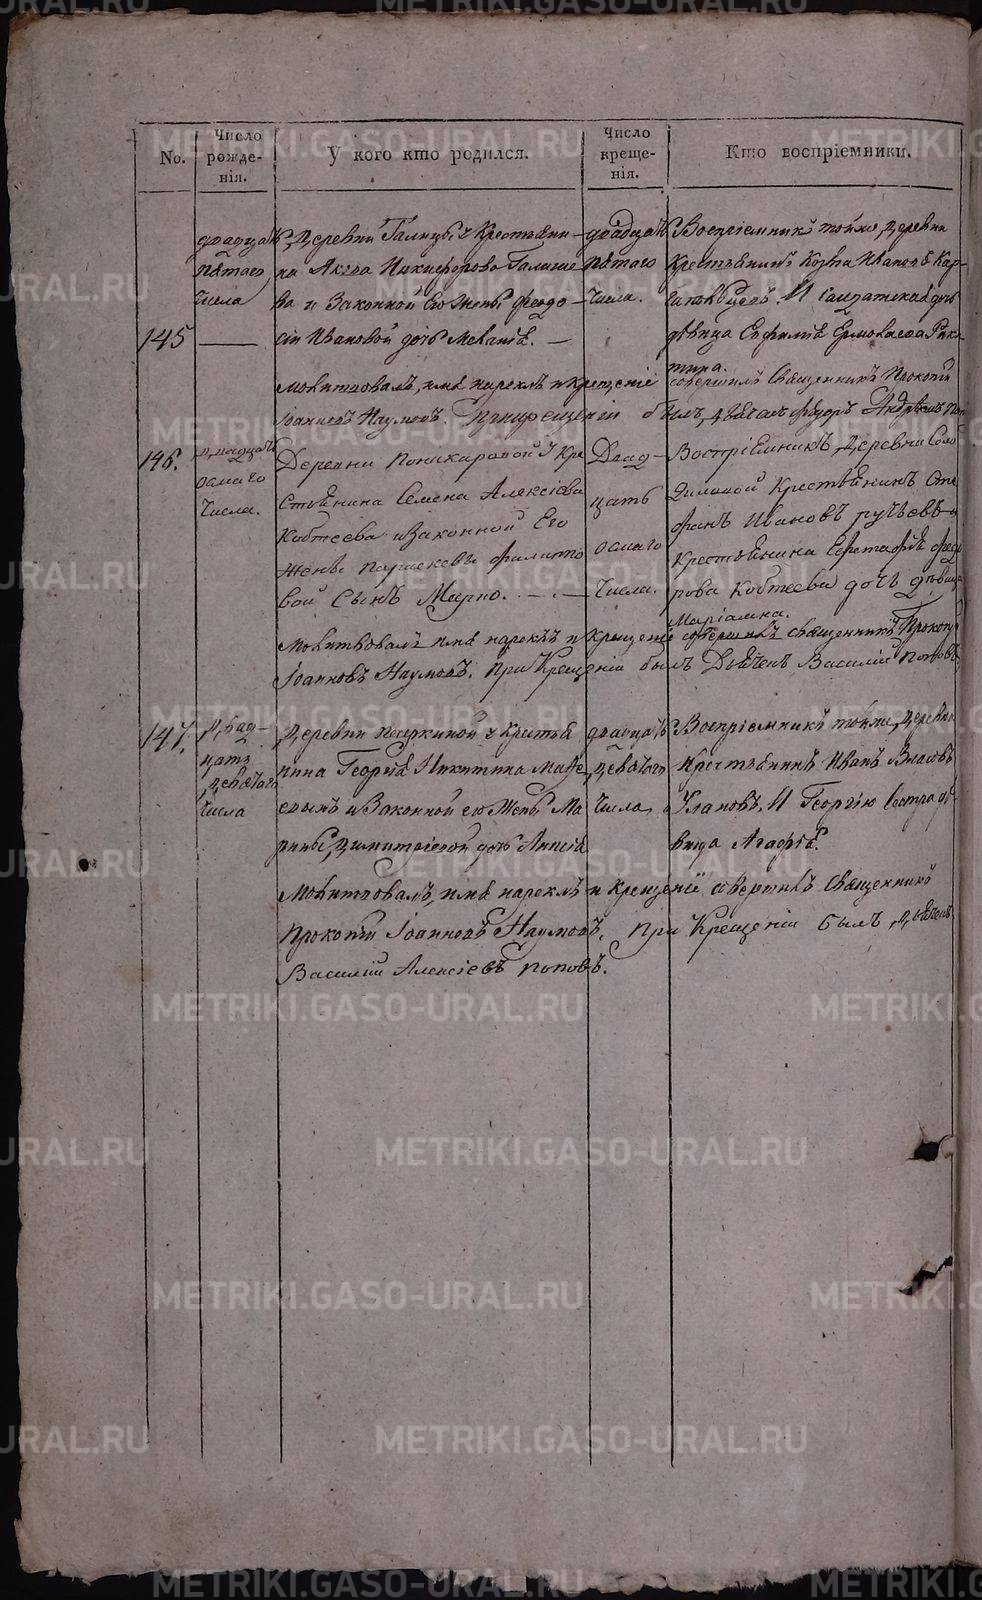 No.
Число рожденія.
У кого кто родился.
Число крещенія.
Кто воспріемники.
145
двадцать
пятаго
числа
Деревни Галицы у Крестьяни-
на Акева Никифорова Галице
ва и Законной Его Жены Феодо
сіи Ивановой дочь Меланія.
двадцать
пятаго
Числа.
Воспріемникъ тойже деревни
Крестьянинъ Козма Ивановъ
И Салдатская дочь
дѣвица Евфимія
Молитвовалъ, имя нареклъ и крещеніе совершилъ Священникъ Прокопій
Іоанновъ Наумовъ. При крещеніи былъ, дьячекъ Андреевъ
146.
двадцать
осмаго
Числа.
Деревни у Кре
стьянина Семена Алексіева
Кобтеева и Законной Его
Жены Параскевы Филипо
вой Сынъ Марко.
Двад-
цать
осмаго
Числа.
Воспріемникъ, Деревни
Крестьянинъ Сте
фанъ Ивановъ
Крестьянина Евстафія Федо
рова Кобтеева дочь дѣвица
Маріамна.
Молитвовалъ имя нареклъ и крещеніе совершилъ священникъ Прокопій
Іоанновъ Наумовъ. При Крещеніи былъ Дьячекъ Василій Поповъ
147.
Двад-
цать
девятаго
Числа
Деревни у Крестья
нина Георгія Никитина
и Законной его Жены Ма
рины Димитріевой дочь Анисія
двадцать
девятаго
Числа
Воспріемникъ тойже, деревни
Крестьянинъ Иванъ Власовъ
Улановъ. И Георгію Сестра дѣ-
вица Агафія.
Молитвовалъ, имя нареклъ и крещеніе совершилъ Священникъ
Прокопій Іоанновъ Наумовъ. При Крещеніи былъ, дьячекъ
Василій Алексіевъ Поповъ.
METRIKI.GASO-URAL.RU